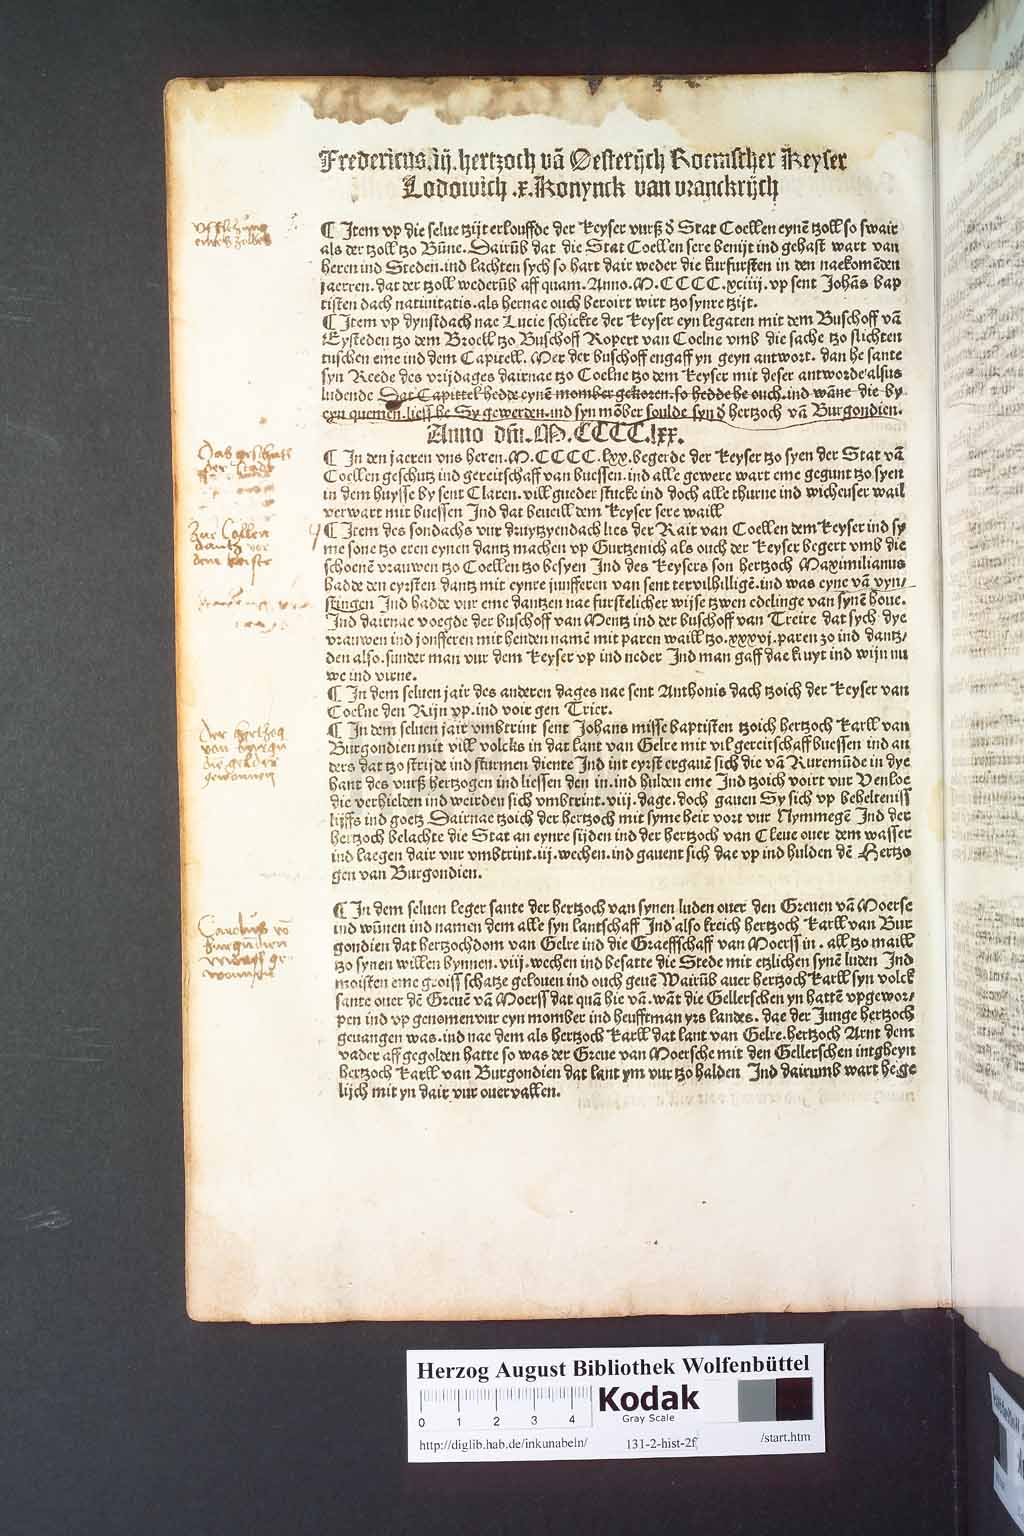 Fredericus .iij. hertzoch vā Oesterijch Roemscher Keyser
Lodowich .x. Konynck van vranckrijch
¶ Item vp die selue tzijt erlouffde der keyser vurß d' Stat Coellen eynē tzoll so swair
als der tzoll tzo Būne. Dairūb dat die Stat Coellen sere benijt ind gehast wart van
heren ind Steden. ind lachten sych so hart dair weder die kurfursten in den naekomēden
jaerren. dat der tzoll wederūb aff quam. Anno. M. CCCC. xciiij. vp sent Johās bap
tisten dach natiuitatis. als hernae ouch beroirt wirt tzo synre tzijt.
¶ Item vp dynstdach nae Lucie schickte der keyser eyn legaten mit dem Buschoff vā
Eysteden tzo dem Broell tzo Buschoff Ropert van Coelne vmb die sache tzo slichten
tuschen eme ind dem Capitell. Mer der buschoff engaff yn geyn antwort. dan he sante
syn Reede des vrijdages dairnae tzo Coelne tzo dem keyser mit deser antworde alsus
ludende Dat Capittel hedde eynē momber gekoren. so hedde he ouch. ind wāne die by
eyn quemen. liess he Sy gewerden. ind syn mōber soulde syn d' hertzoch vā Burgondien.
Anno dñi. M. CCCC. lxx.
Das geschutz
der Stadt
¶ In den jaeren vns heren. M. CCCC. lxx. begerde der keyser tzo syen der Stat vā
Coellen geschutz ind gereitschaff van buessen. ind alle gewere wart eme gegunt tzo syen
in dem huysse by sent Claren. vill gueder stucke ind doch alle thurne ind wicheuser wail
verwart mit buessen Ind dat beueill dem keyser sere waill
Zur Collen
dantz vor
dem keiser
¶ Item des sondachs vur druytzyendach lies der Rait van Coellen dem keyser ind sy
me sone tzo eren eynen dantz machen vp Gurtzenich als ouch der keyser begert vmb die
schoenē vrauwen tzo Coellen tzo besyen Ind des keysers son hertzoch Maximilianus
hadde den eyrsten dantz mit eynre junfferen van sent tervilbilligē. ind was eyne vā vyn-
stingen Ind hadde vur eme dantzen nae furstelicher wijse tzwen edelinge van synē houe.
Ind dairnae voegde der buschoff van Mentz ind der buschoff van Treire dat sych dye
vrauwen ind jonfferen mit henden namē mit paren waill tzo. xxxvj. paren zo ind dantz-
den also. sunder man vur dem keyser vp ind neder Ind man gaff dae kruyt ind wijn nu
we ind virne.
¶ In dem seluen jair des anderen dages nae sent Anthonis dach tzoich der keyser van
Coelne den Rijn vp. ind voir gen Trier.
Der hertzog
von burgu
die gelder
gewonnen
¶ In dem seluen jair vmbtrint sent Johans misse baptisten tzoich hertzoch Karll van
Burgondien mit vill volcks in dat lant van Gelre mit vil gereitschaff buessen ind an
ders dat tzo strijde ind sturmen diente Ind int eyrst ergauē sich die vā Ruremūde in dye
hant des vurß hertzogen ind liessen den in. ind hulden eme Ind tzoich voirt vur Venloe
die verhielden ind weirden sich vmbtrint. viij. dage. doch gauen Sy sich vp behelteniss
lijffs ind goetz Dairnae tzoich der hertzoch mit syme heir vort vur Nymmegē Ind der
hertzoch belachte die Stat an eynre sijden ind der hertzoch van Cleue ouer dem wasser
ind laegen dair vur vmbtrint. iij. wechen. ind gauent sich dae vp ind hulden dē Hertzo
gen van Burgondien.
Carolus vō
burgundien
¶ In dem seluen leger sante der hertzoch van synen luden ouer den Greuen vā Moerse
ind wūnen ind namen dem alle syn lantschaff Ind also kreich hertzoch Karll van Bur
gondien dat hertzochdom van Gelre ind die Graeffschaff van Moerss in. all tzo maill
tzo synen willen bynnen. viij. wechen ind besatte die Stede mit etzlichen synē luden Ind
moisten eme groiss schatze gelouen ind ouch geuē Wairūb auer hertzoch Karll syn volck
sante ouer dē Greuē vā Moerss dat quā hie vā. wāt die Gellerschen yn hattē vpgewor-
pen ind vp genomen vur eyn momber ind heufftman yrs landes. dae der Junge hertzoch
geuangen was. ind nae dem als hertzoch Karll dat lant van Gelre. hertzoch Arnt dem
vader aff gegolden hatte so was der Greue van Moersche mit den Gellerschen intgheyn
hertzoch Karll van Burgondien dat lant ym vur tzo halden Ind dairumb wart he ge
lijch mit yn dair vur ouervallen.
Herzog August Bibliothek Wolfenbüttel
0 1 2 3 4
Kodak
Gray Scale
http://diglib.hab.de/inkunabeln/ 131-2-hist-2f /start.htm